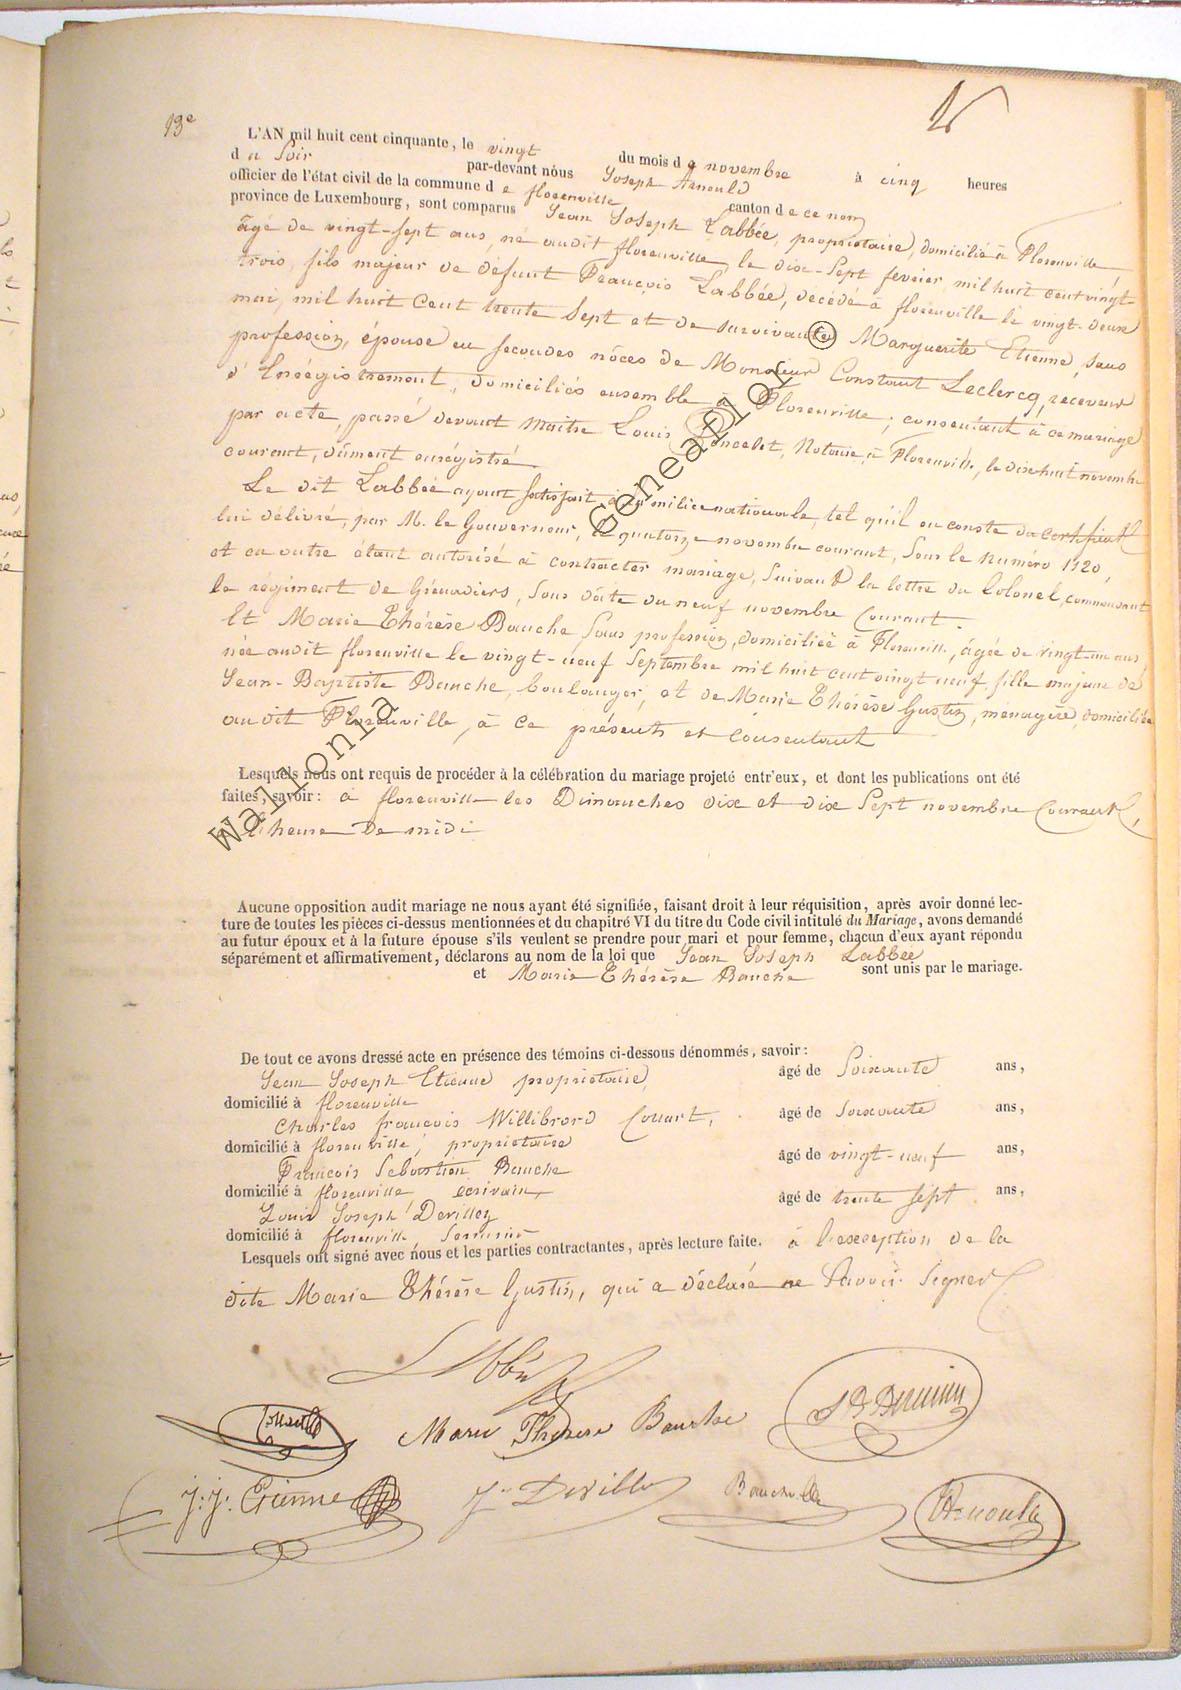 13e
L'AN mil huit cent cinquante, le vingt du mois de novembre à cinq heures
du soir par-devant nous Joseph Arnould
officier de l'état civil de la commune de florenville canton de ce nom
province de Luxembourg, sont comparus Jean Joseph Labbée, propriétaire, domicilié à Florenville
âgé de vingt-sept ans, né audit florenville, le dix-Sept fevrier mil huit cent vingt-
trois, fils majeur de défunt François Labbée, décédé à florenville le vingt-deux
mai, mil huit Cent trente Sept et de survivante Marguerite Etienne, sans
profession, épouse en secondes nôces de Monsieur Constant Leclercq, receveur
d'Enrégistrement, domiciliés ensemble à Florenville; consentant à ce mariage
par acte, passé devant maitre Louis Poncelet, Notaire à Florenville, le dix huit novembre
courant, dûment enrégistré.
Le dit Labbée ayant Satisfait à la milice nationale, tel qu'il en conste du certificat
lui délivré, par M. le Gouverneur, le quatorze novembre courant, Sous le numéro 1120,
et en outre étant autorisé à contracter mariage, Suivant la lettre du Colonel, commandant
le régiment de Grénadiers, Sous date du neuf novembre Courant.
Et Marie Thérèse Bauche Sans profession, domiciliée à Florenville, âgée de vingt-un ans,
née audit florenville le vingt-neuf Septembre mil huit cent vingt neuf, fille majeure de
Jean-Baptiste Bauche, boulanger, et de Marie Thérèse Gustin, ménagère, domiciliés
audit Florenville, à ce présents et consentant
Lesquels nous ont requis de procéder à la célébration du mariage projeté entr'eux, et dont les publications ont été
faites, savoir: à florenville les Dimanches dix et dix Sept novembre Courant,
à l'heure de midi
Aucune opposition audit mariage ne nous ayant été signifiée, faisant droit à leur réquisition, après avoir donné lec-
ture de toutes les pièces ci-dessus mentionnées et du chapitre VI du titre du Code civil intitulé du Mariage, avons demandé
au futur époux et à la future épouse s'ils veulent se prendre pour mari et pour femme, chacun d'eux ayant répondu
séparément et affirmativement, déclarons au nom de la loi que Jean Joseph Labbée
et Marie Thérèse Bauche sont unis par le mariage.
De tout ce avons dressé acte en présence des témoins ci-dessous dénommés, savoir:
Jean Joseph Etienne propriétaire, âgé de Soixante ans,
domicilié à florenville
Charles françois Willibrord Collart, âgé de Soixante ans,
domicilié à florenville, propriétaire
François Sebastien Bauche âgé de vingt-neuf ans,
domicilié à florenville écrivain,
Louis Joseph Devillez âgé de trente sept ans,
domicilié à florenville,
Lesquels ont signé avec nous et les parties contractantes, après lecture faite. à l'exception de la
dite Marie Thérèse Gustin, qui a déclaré ne Savoir Signer
Labbée
Collart
Marie Thérèse Bauche
J: J: Etienne
Deville
Bauche
Arnould
Wallonia Geneaflor ©